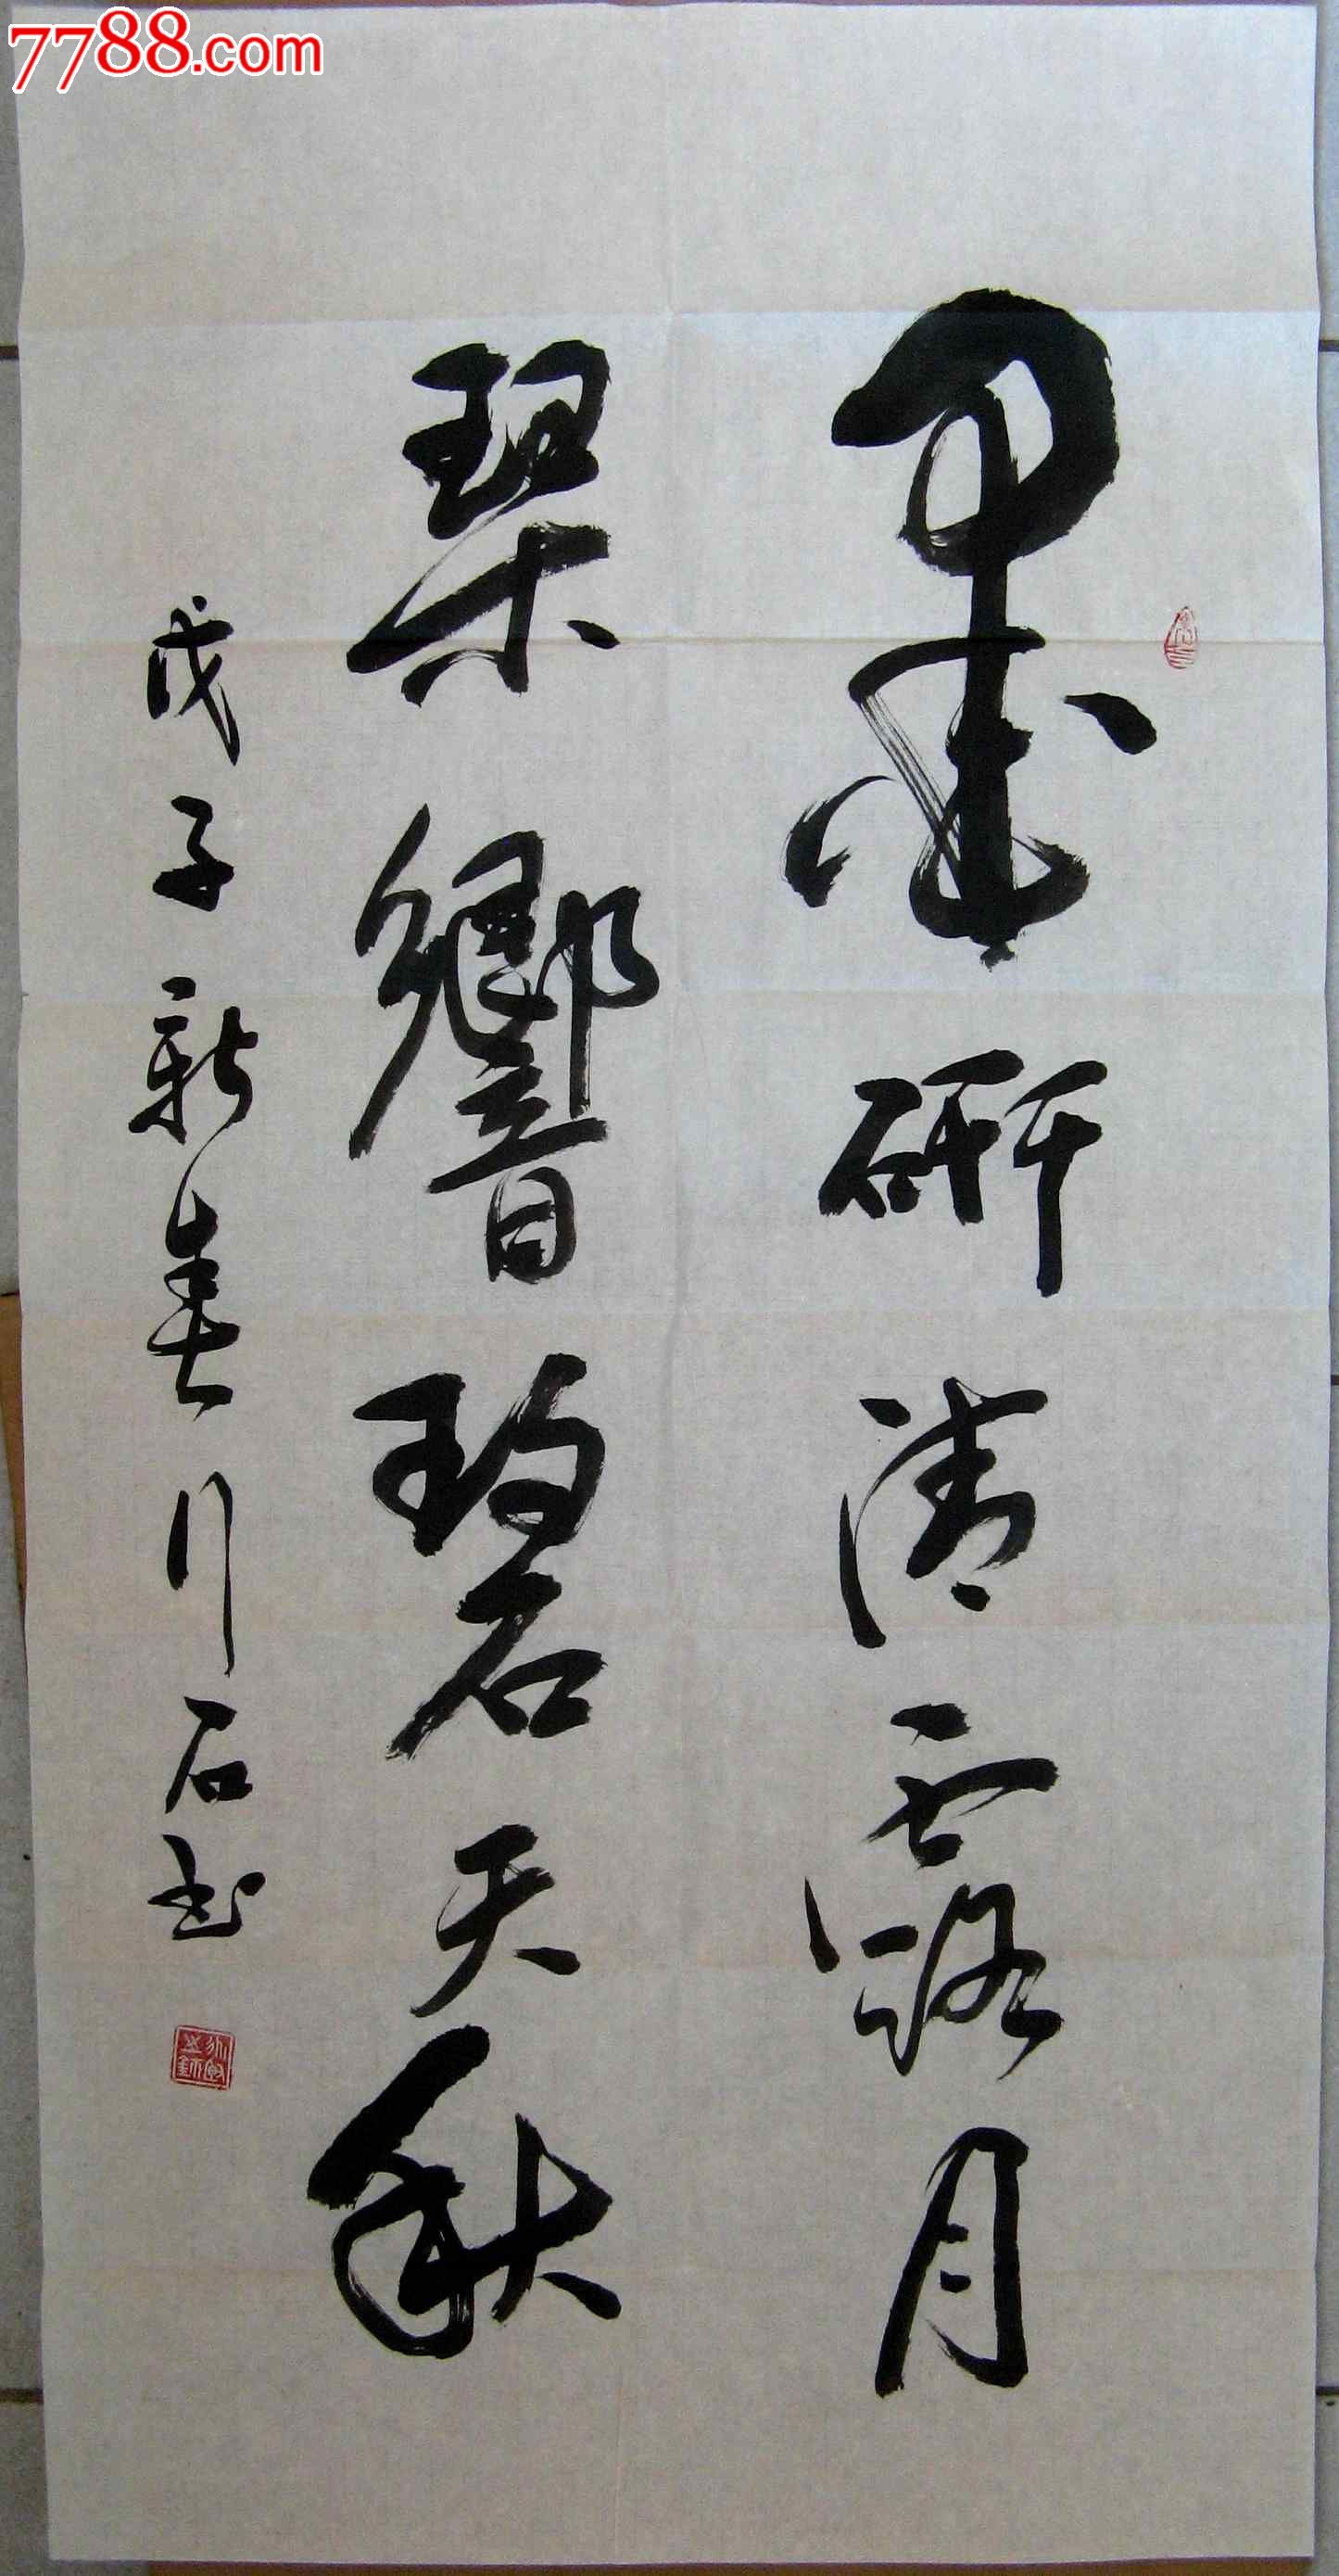 7788.com
墨研清露月
琴響碧天秋
戊子新春行石书